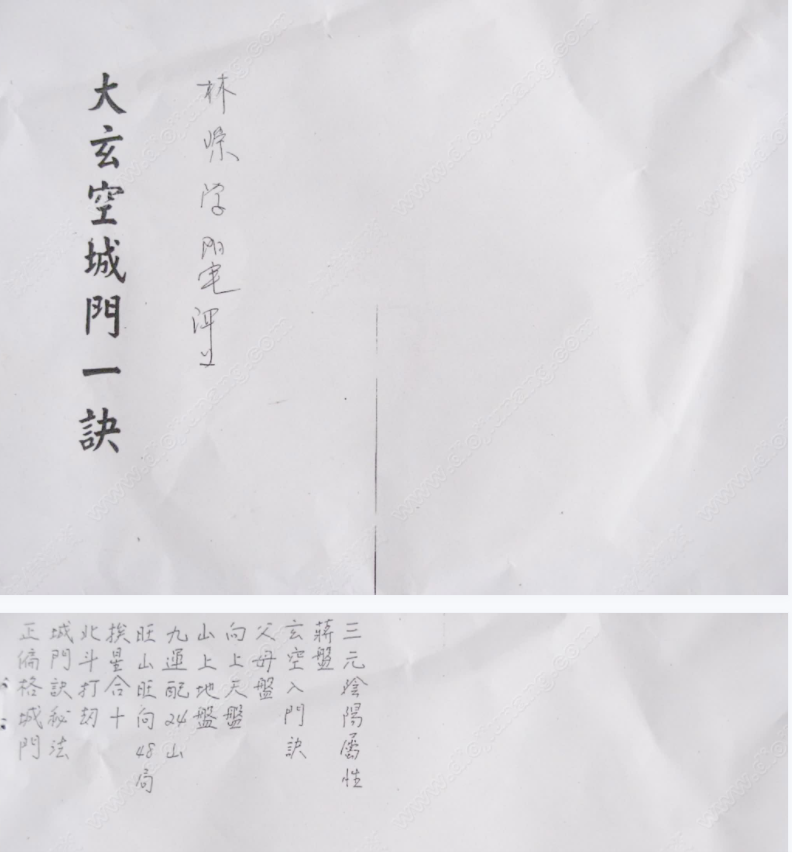 大玄空城門一訣
林
三元陰陽屬性
蔣盤
玄空入門訣
父母盤
向上天盤
山上地盤
九運配24山
旺山旺向48局
挨星合十
北斗打劫
城門訣秘法
正偏格城門